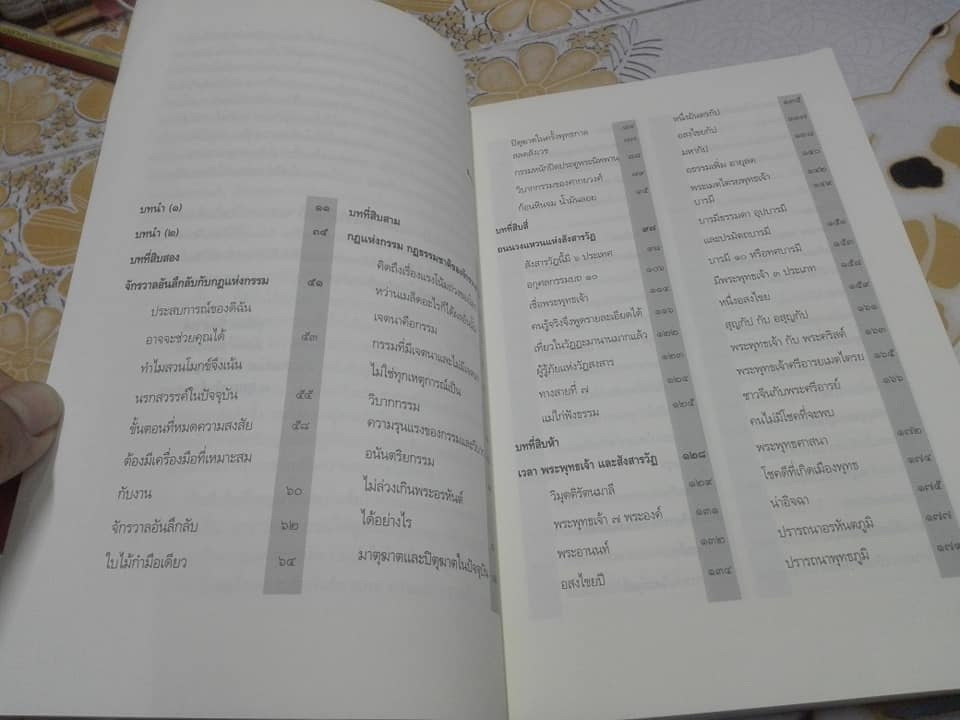 บทนำ (๑) ๑๑
บทนำ (๒) ๓๕
บทที่สิบสอง
จักรวาลอันลึกลับกับกฎแห่งกรรม ๔๑
ประสบการณ์ของดิฉัน
อาจจะช่วยคุณได้ ๕๓
ทำไมสวนโมกข์จึงเน้น
นรกสวรรค์ในปัจจุบัน ๕๕
ขั้นตอนที่หมดความสงสัย ๕๘
ต้องมีเครื่องมือที่เหมาะสม
กับงาน ๖๐
จักรวาลอันลึกลับ ๖๒
ใบไม้กำมือเดียว ๖๔
บทที่สิบสาม
กฎแห่งกรรม กฎธรรมชาติของ
คิดถึงเรื่องแรงโน้มถ่วงของ
หว่านเมล็ดอะไรก็ได้
เจตนาคือกรรม
กรรมที่มีเจตนาและไม่มี
ไม่ใช่ทุกเหตุการณ์เป็น
วิบากกรรม
ความรุนแรงของกรรมและ
อนันตริยกรรม
ไม่ล่วงเกินพระอรหันต์
ได้อย่างไร
มาตุฆาตและปิตุฆาตในปัจจุบัน
ปิตุฆาตในครั้งพุทธกาล
สลดสังเวช
กรรมหนักปิดประตูพระนิพพาน
วิบากกรรมของศากยวงศ์
ก้อนหินจม น้ำมันลอย ๙๕
บทที่สิบสี่
ถนนวงแหวนแห่งสังสารวัฏ ๙๘
สังสารวัฏนี้มี ๖ ประเทศ
อกุศลกรรมบถ ๑๐ ๑๐๖
เชื่อพระพุทธเจ้า
คนรู้จริงจึงพูดรายละเอียดได้ ๑๑๖
เที่ยวในวัฏฏะมานานมากแล้ว ๑๒๒
ผู้รู้ภัยแห่งวัฏสงสาร ๑๒๓
ทางสายที่ ๗ ๑๒๔
แม่ไก่ฟังธรรม ๑๒๕
บทที่สิบห้า
เวลา พระพุทธเจ้า และสังสารวัฏ ๑๒๘
วิมุตติรัตนมาลี ๑๒๙
พระพุทธเจ้า ๗ พระองค์ ๑๓๑
พระอานนท์ ๑๓๒
อสงไขยปี ๑๓๔
หนึ่งอันตรกัป ๑๓๕
อสงไขยกัป ๑๓๗
มหากัป ๑๓๘
ธรรมเพิ่ม อายุลด ๑๔๐
พระเมตไตรยพุทธเจ้า ๑๔๒
บารมี ๑๔๙
บารมีธรรมดา อุปบารมี
และปรมัตถบารมี ๑๕๑
บารมี ๑๐ หรือทศบารมี ๑๕๓
มีพระพุทธเจ้า ๓ ประเภท ๑๕๘
หนึ่งอสงไขย ๑๕๙
สุญกัป กับ อสุญกัป ๑๖๑
พระพุทธเจ้า กับ พระคริสต์ ๑๖๓
พระพุทธเจ้าศรีอารยเมตไตรย ๑๖๕
ชาวจีนกับพระศรีอารย์ ๑๖๖
คนไม่มีโชคที่จะพบ
พระพุทธศาสนา ๑๗๒
โชคดีที่เกิดเมืองพุทธ ๑๗๔
น่าอิจฉา ๑๗๕
ปรารถนาอรหันตภูมิ ๑๗๗
ปรารถนาพุทธภูมิ